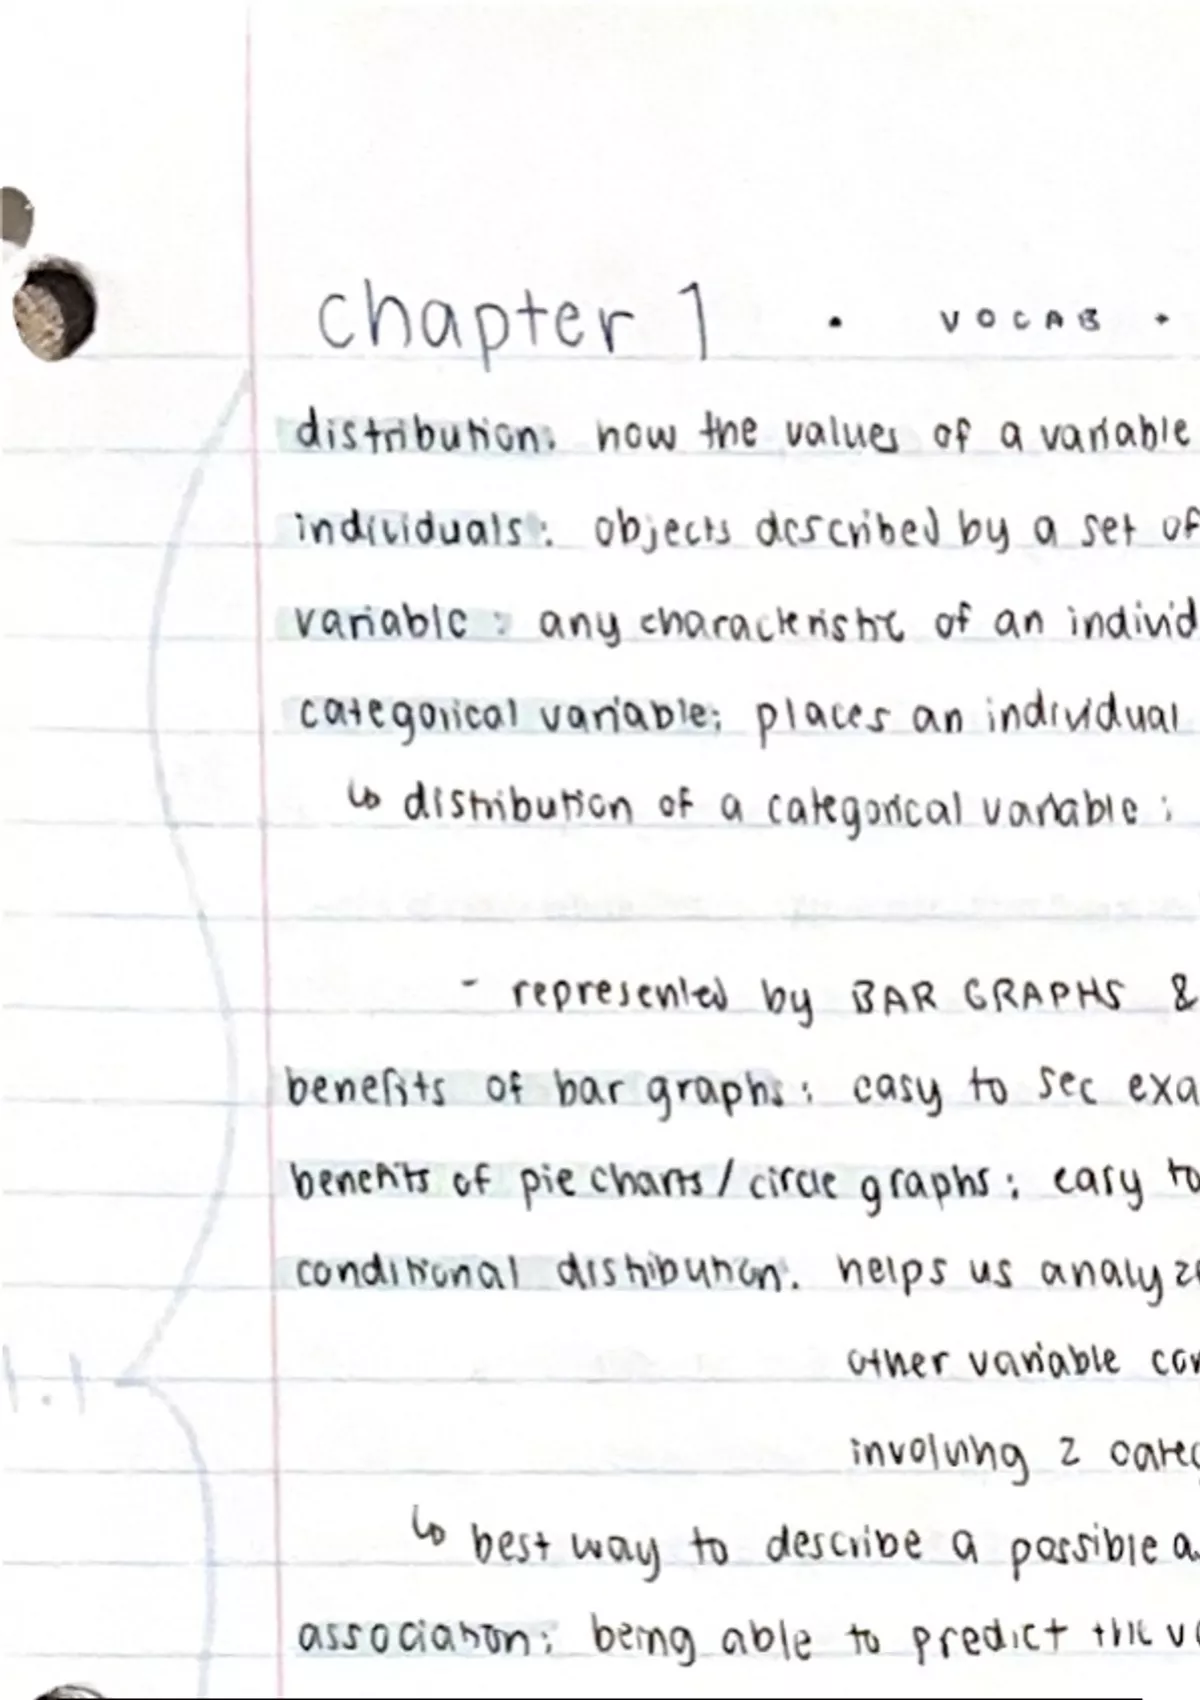 chapter 1 • VOCAB •
distribution: how the values of a variable
individuals: objects described by a set of
variable: any characteristic of an individ
categorical variable: places an individual
↳ distribution of a categorical variable:
- represented by BAR GRAPHS &
benefits of bar graphs: easy to see exa
benefits of pie charts / circle graphs: easy to
conditional distribution: helps us analyze
other variable
involving 2 categ
1.1
↳ best way to describe a possible a
association: being able to predict the